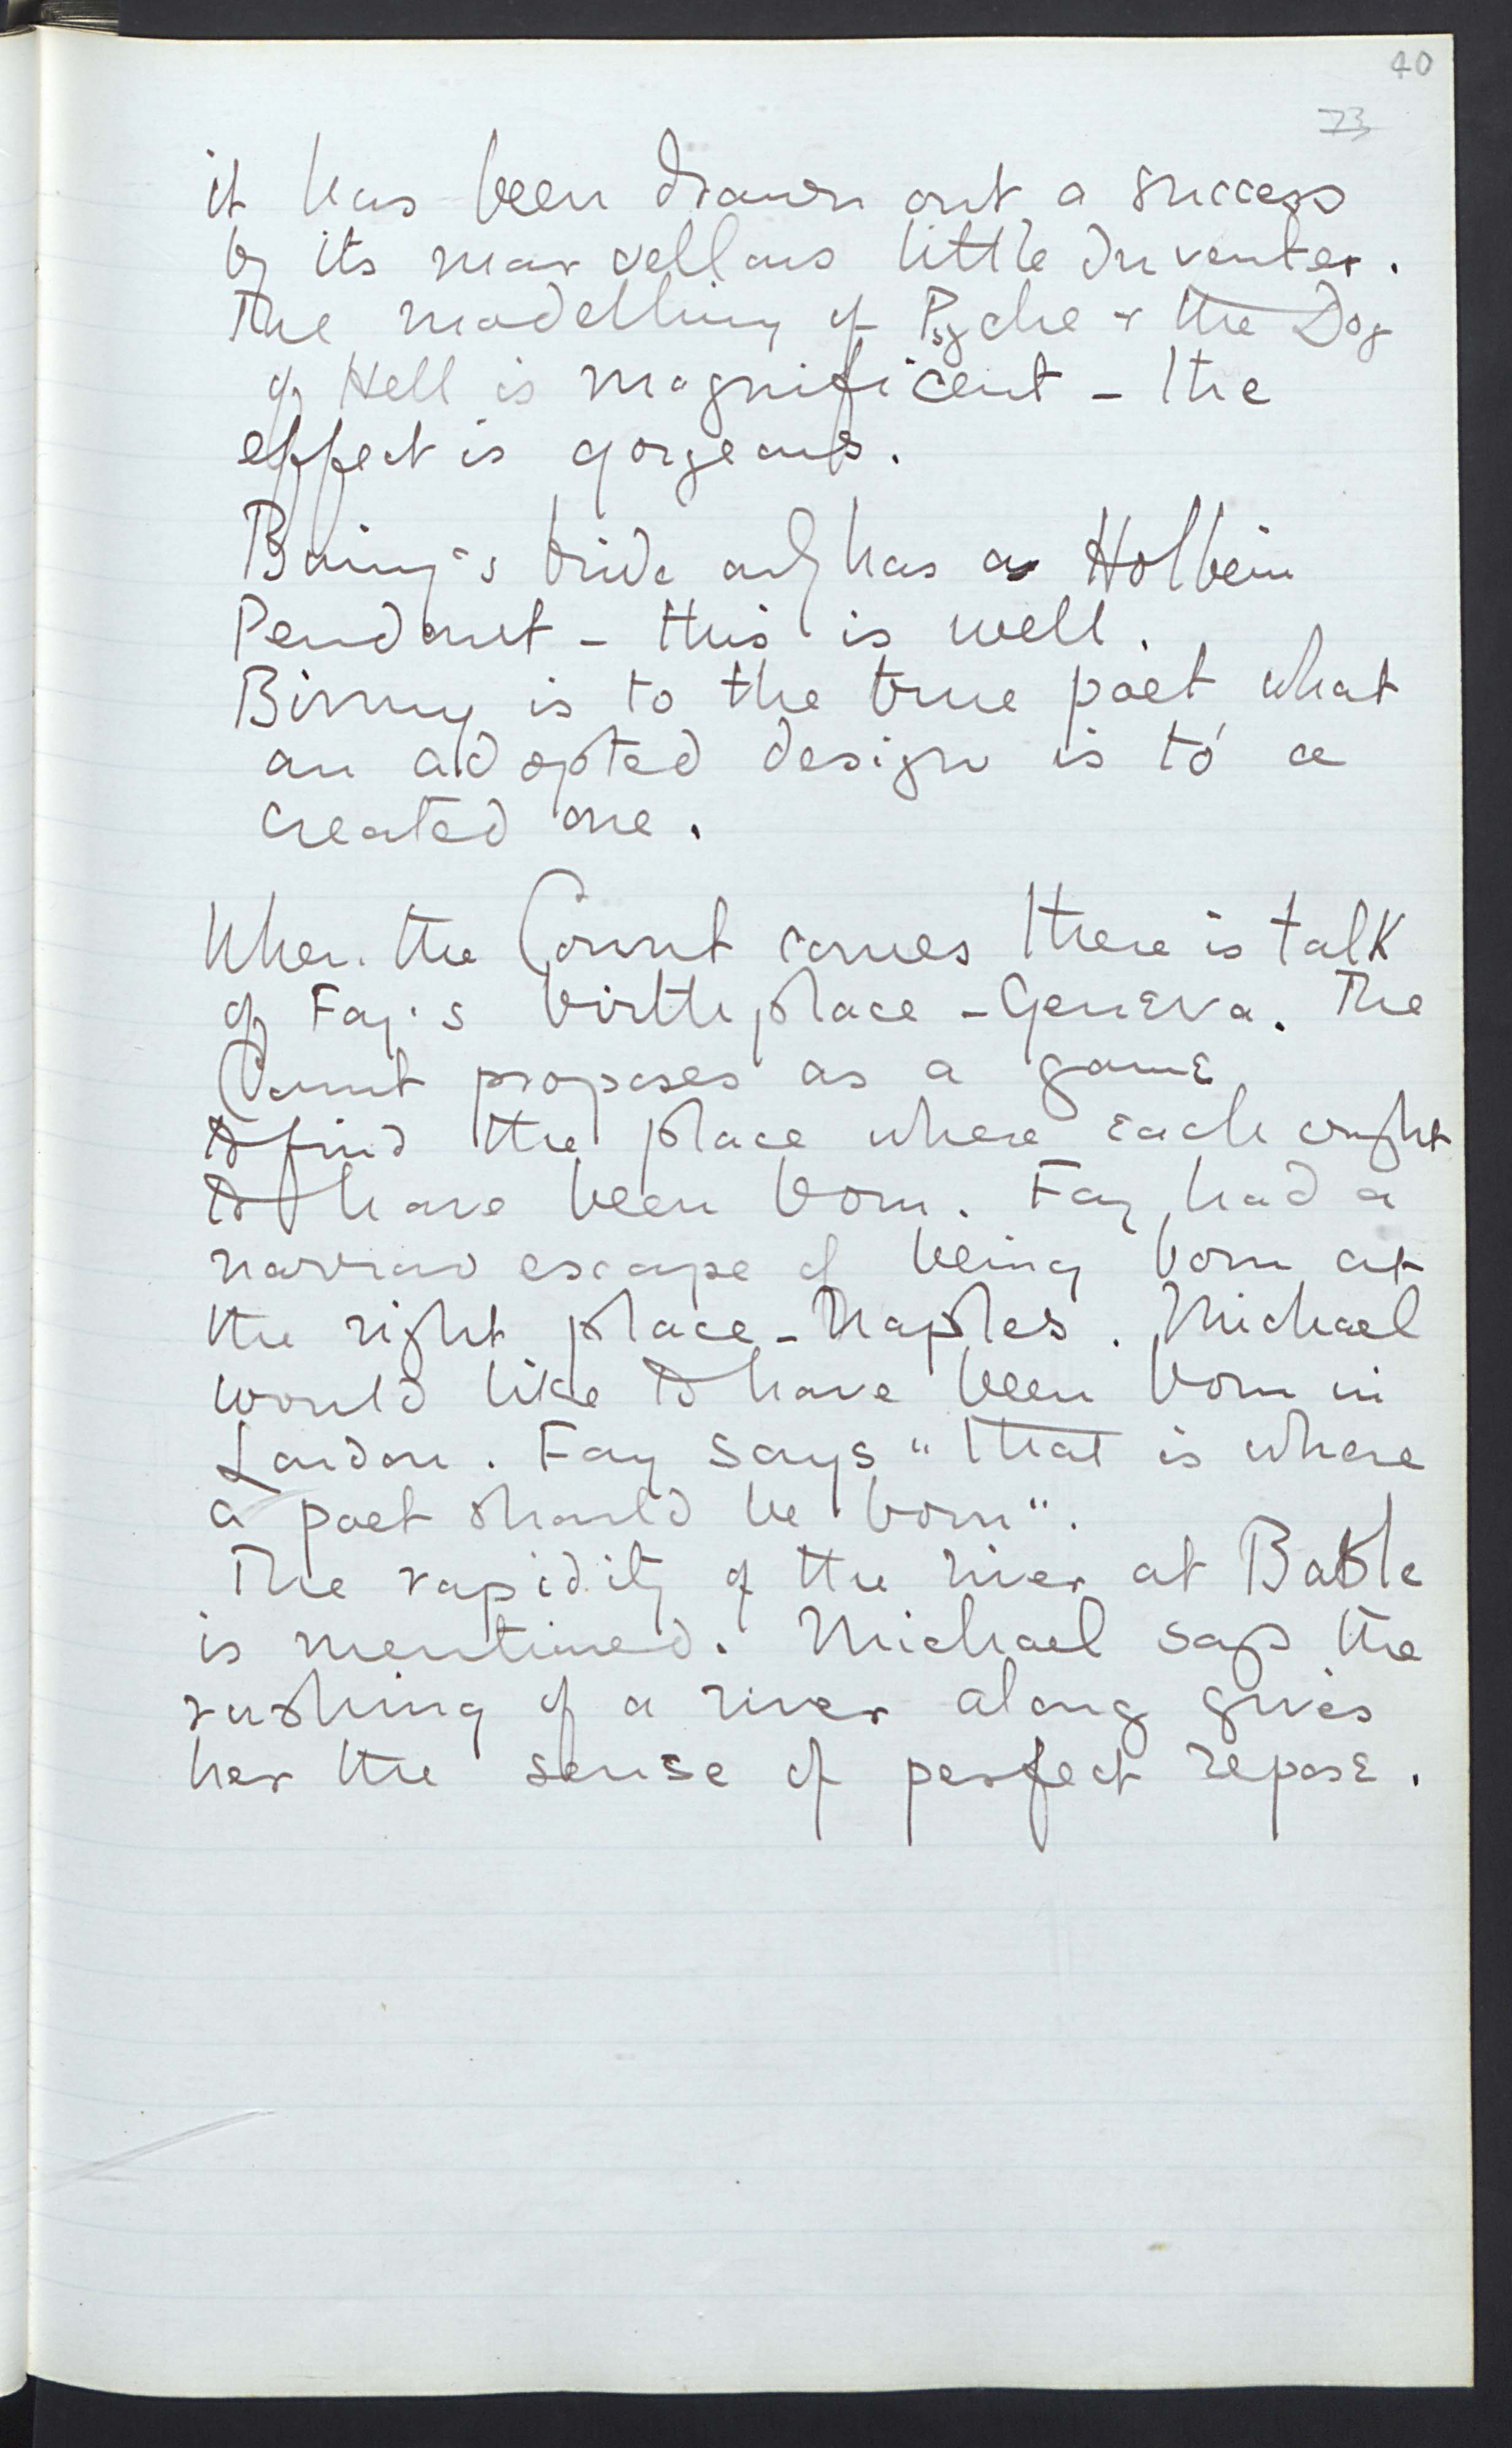 40
73
it has been drawn out a success
by its marvellous little Inventer.
The modelling of Psyche & the Dog
of Hell is magnificent – the
effect is gorgeous.
Binny's bride only has a Holbein
Pendant – this is well.
Binny is to the true poet what
an adopted design is to a
created one.
When the Count comes there is talk
of Fay's birthplace – Geneva. The
Count proposes as a game
to find the place where each ought
to have been born. Fay had a
narrow escape of being born at
the right place – Naples. Michael
would like to have been born in
London. Fay says "that is where
a poet should be born".
The rapidity of the river at
is mentioned. Michael says the
rushing of a river along gives
her the sense of perfect repose.